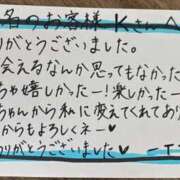 名のお客様 Kさんへ
りがとうございました。
会えるなんか思ってもなかった
ちゃ嬉しかったー!楽しかったー!
ちゃんから私に変えてくれてあり
からもよろしくネー♥
りがとうございました♥ ーT